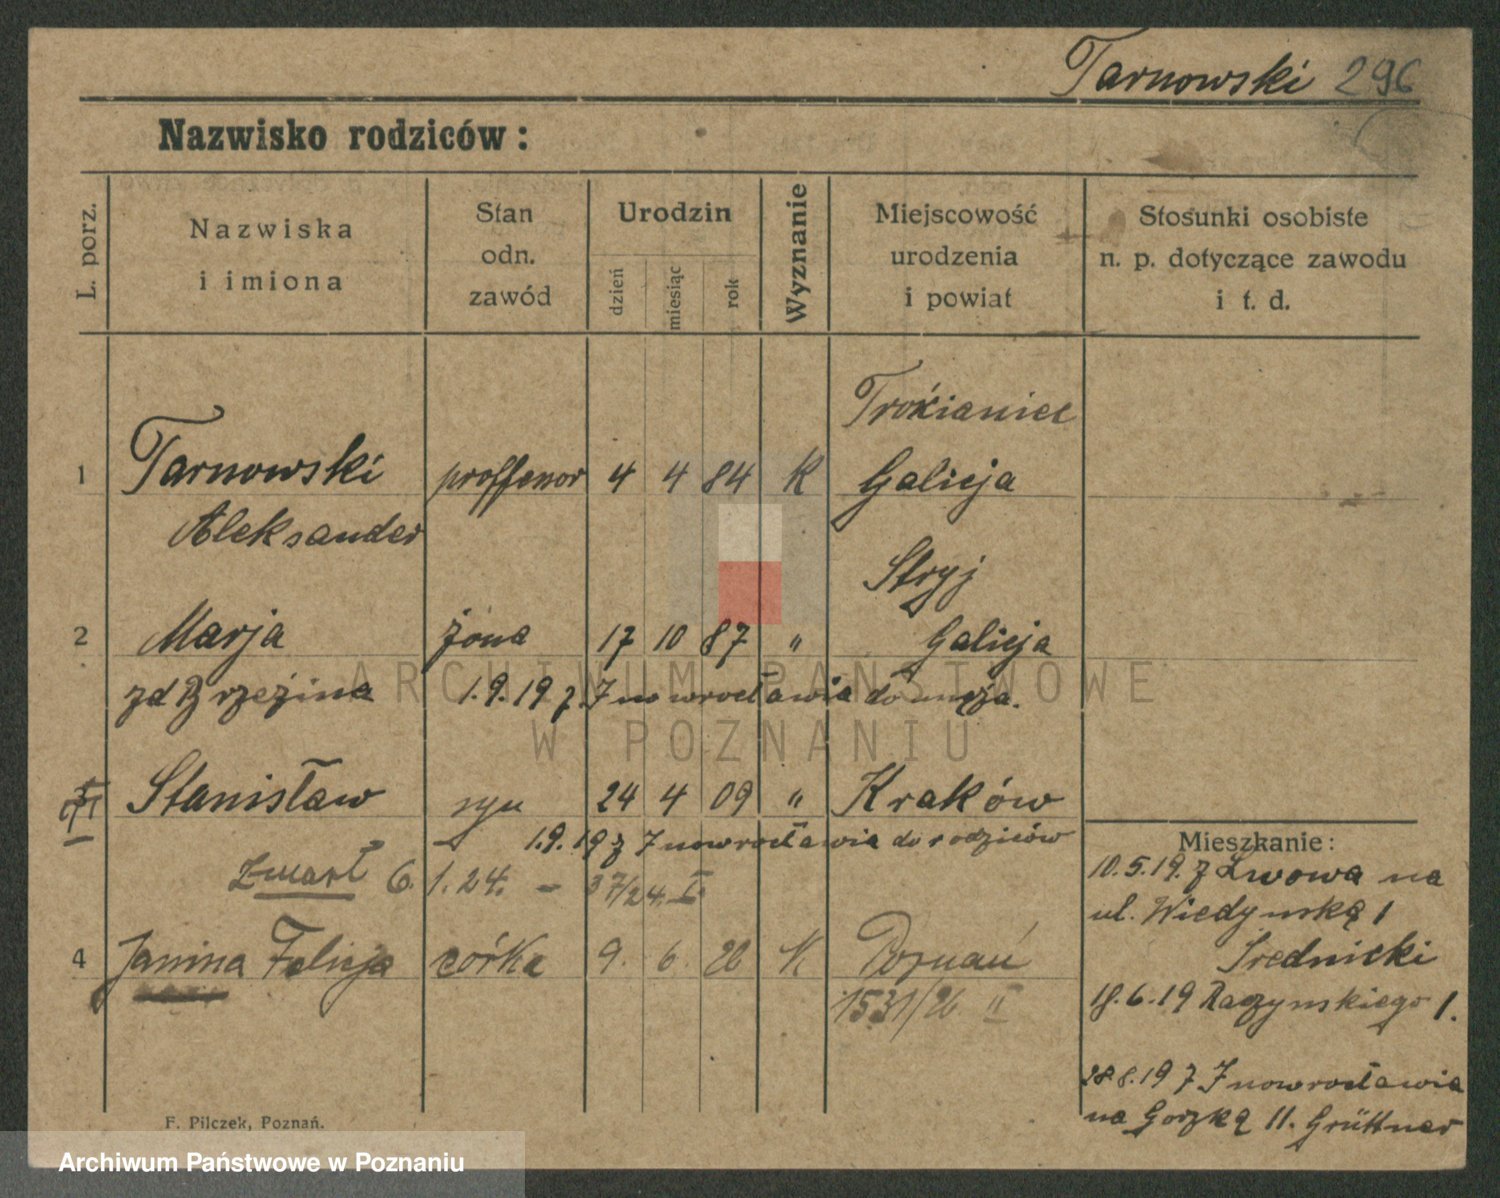 Tarnowski 296
Nazwisko rodziców:
L. porz.
Nazwiska
i imiona
Stan
odn.
zawód
Urodzin
dzień
miesiąc
rok
Wyznanie
Miejscowość
urodzenia
i powiat
Stosunki osobiste
n. p. dotyczące zawodu
i t. d.
Trościaniec
1 Tarnowski proffesor 4 4 84 K Galicja
Aleksander
Stryj
2 Marja żona 17 10 87 " Galicja
zd Brzezina 1.9.19 z Inowrocławia do męża.
Stanisław syn 24 4 09 " Kraków
1.9.19 z Inowrocławia do rodziców
Zmarł 6.1.24. - 37/24. I.
4 Janina Felicja córka 9. 6. 26 K Poznań
1531/26 II
Mieszkanie:
10.5.19. z Lwowa na
ul. Wiedyńską 1
Średnicki
18.6.19 Raczynskiego 1.
28.8.19 z Inowrocławia
na Gorzką 11. Grüttner
F. Pilczek, Poznań.
ARCHIWUM PAŃSTWOWE
W POZNANIU
Archiwum Państwowe w Poznaniu